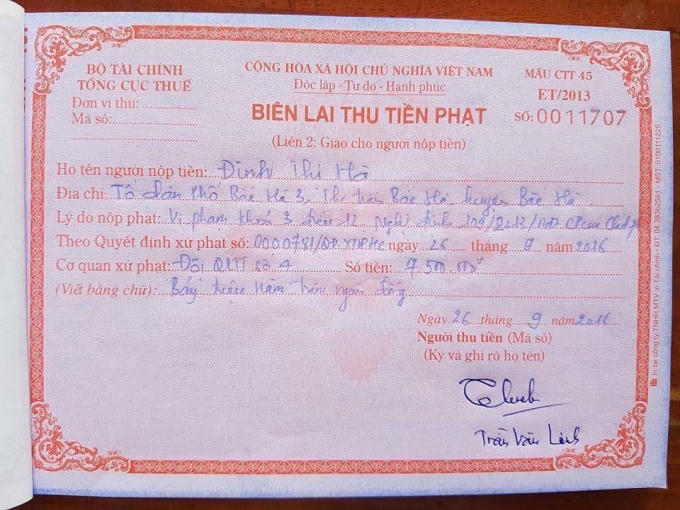 BỘ TÀI CHÍNH
TỔNG CỤC THUẾ
Đơn vị thu:
Mã số:
CỘNG HÒA XÃ HỘI CHỦ NGHĨA VIỆT NAM
Độc lập - Tự do - Hạnh phúc
MẪU CTT 45
ET/2013
SỐ: 0011707
BIÊN LAI THU TIỀN PHẠT
(Liên 2: Giao cho người nộp tiền)
Họ tên người nộp tiền: Đinh Thị Hà
Địa chỉ: Tổ dân phố Bắc Hà 3, Thị trấn Bắc Hà, huyện Bắc Hà.
Lý do nộp phạt: Vi phạm khoản 3 điều 12 Nghị định 109/2013/NĐ-CP của
Theo Quyết định xử phạt số: 0000781/QĐ.XPVPHC ngày 26 tháng 9 năm 2016
Cơ quan xử phạt: Đội QLTT số 4 Số tiền: 7.500.000đ
(Viết bằng chữ): Bảy triệu năm trăm ngàn đồng
Ngày 26 tháng 9 năm 2016
Người thu tiền (Mã số)
(Ký và ghi rõ họ tên)
Trần Văn
In tại công ty TNHH MTV In Tài chính